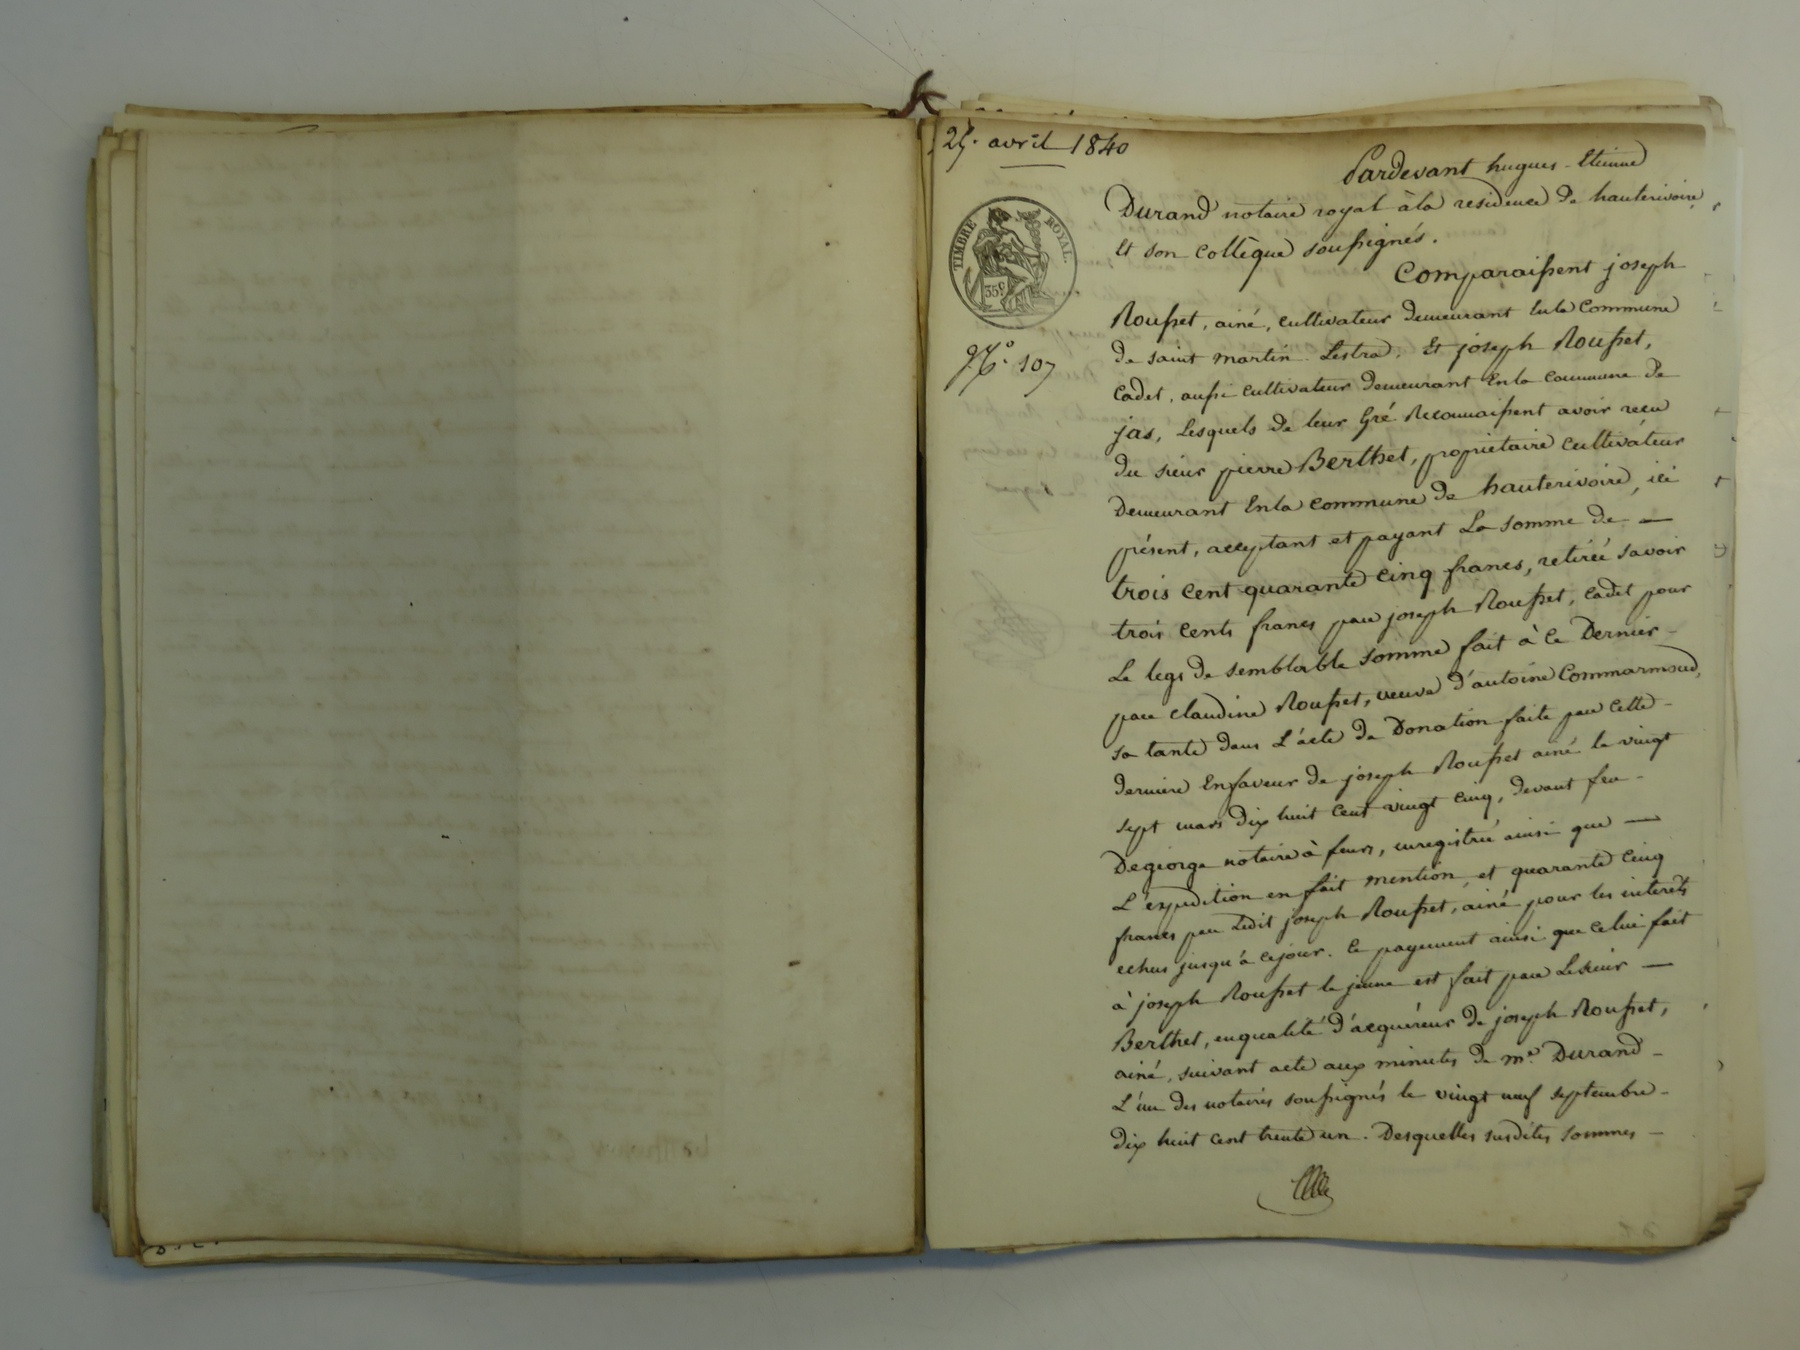 25. avril 1840
TIMBRE ROYAL.
35 c.
N.° 107
Pardevant hugues-Etienne
Durand notaire royal à la residence de hauterivoire
Et son collègue soussignés.
Comparaissent joseph
Rousset, ainé, cultivateur demeurant en la Commune
de saint martin Lestra. Et joseph Rousset,
Cadet, aussi cultivateur demeurant En la commune de
jas, Lesquels de leur Gré Reconnaissent avoir recu
du sieur pierre Berthet, propriétaire cultivateur
Demeurant En la commune de hauterivoire, ici
présent, acceptant et payant La somme de —
trois cent quarante cinq francs, retirée savoir
trois cents francs par joseph Rousset, Cadet pour
Le legs de semblable somme fait à Ce Dernier -
par claudine Rousset, veuve d'antoine Commarmond,
sa tante dans L'acte de Donation faite par Cette -
derniere En faveur de joseph Rousset ainé le vingt
sept mars dix huit Cent vingt cinq, devant feu -
Degeorge notaire à feurs, enregistrée ainsi que —
L'expedition en fait mention, et quarante Cinq
francs par Ledit joseph Rousset, ainé pour les interêts
echus jusqu'à cejour. Ce payement ainsi que Celui fait
à joseph Rousset le jeune est fait par Lesieur —
Berthet, en qualité d'acquéreur de joseph Rousset,
ainé, suivant acte aux minutes de me Durand -
L'un des notaires soussignés le vingt neuf septembre -
dix huit cent trente un. Desquelles susdites sommes —